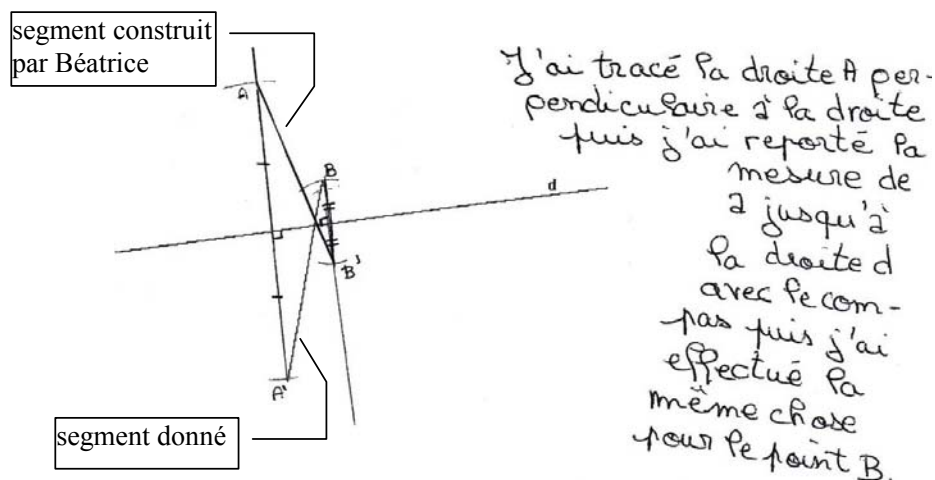 segment construit
par Béatrice
A
B
d
B'
A'
segment donné
J'ai tracé la droite A per-
pendiculaire à la droite
puis j'ai reporté la
mesure de
a jusqu'à
la droite d
avec le com-
pas puis j'ai
effectué la
même chose
pour le point B.